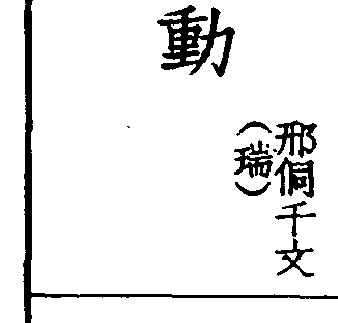 動
邢侗千文
(瑞)